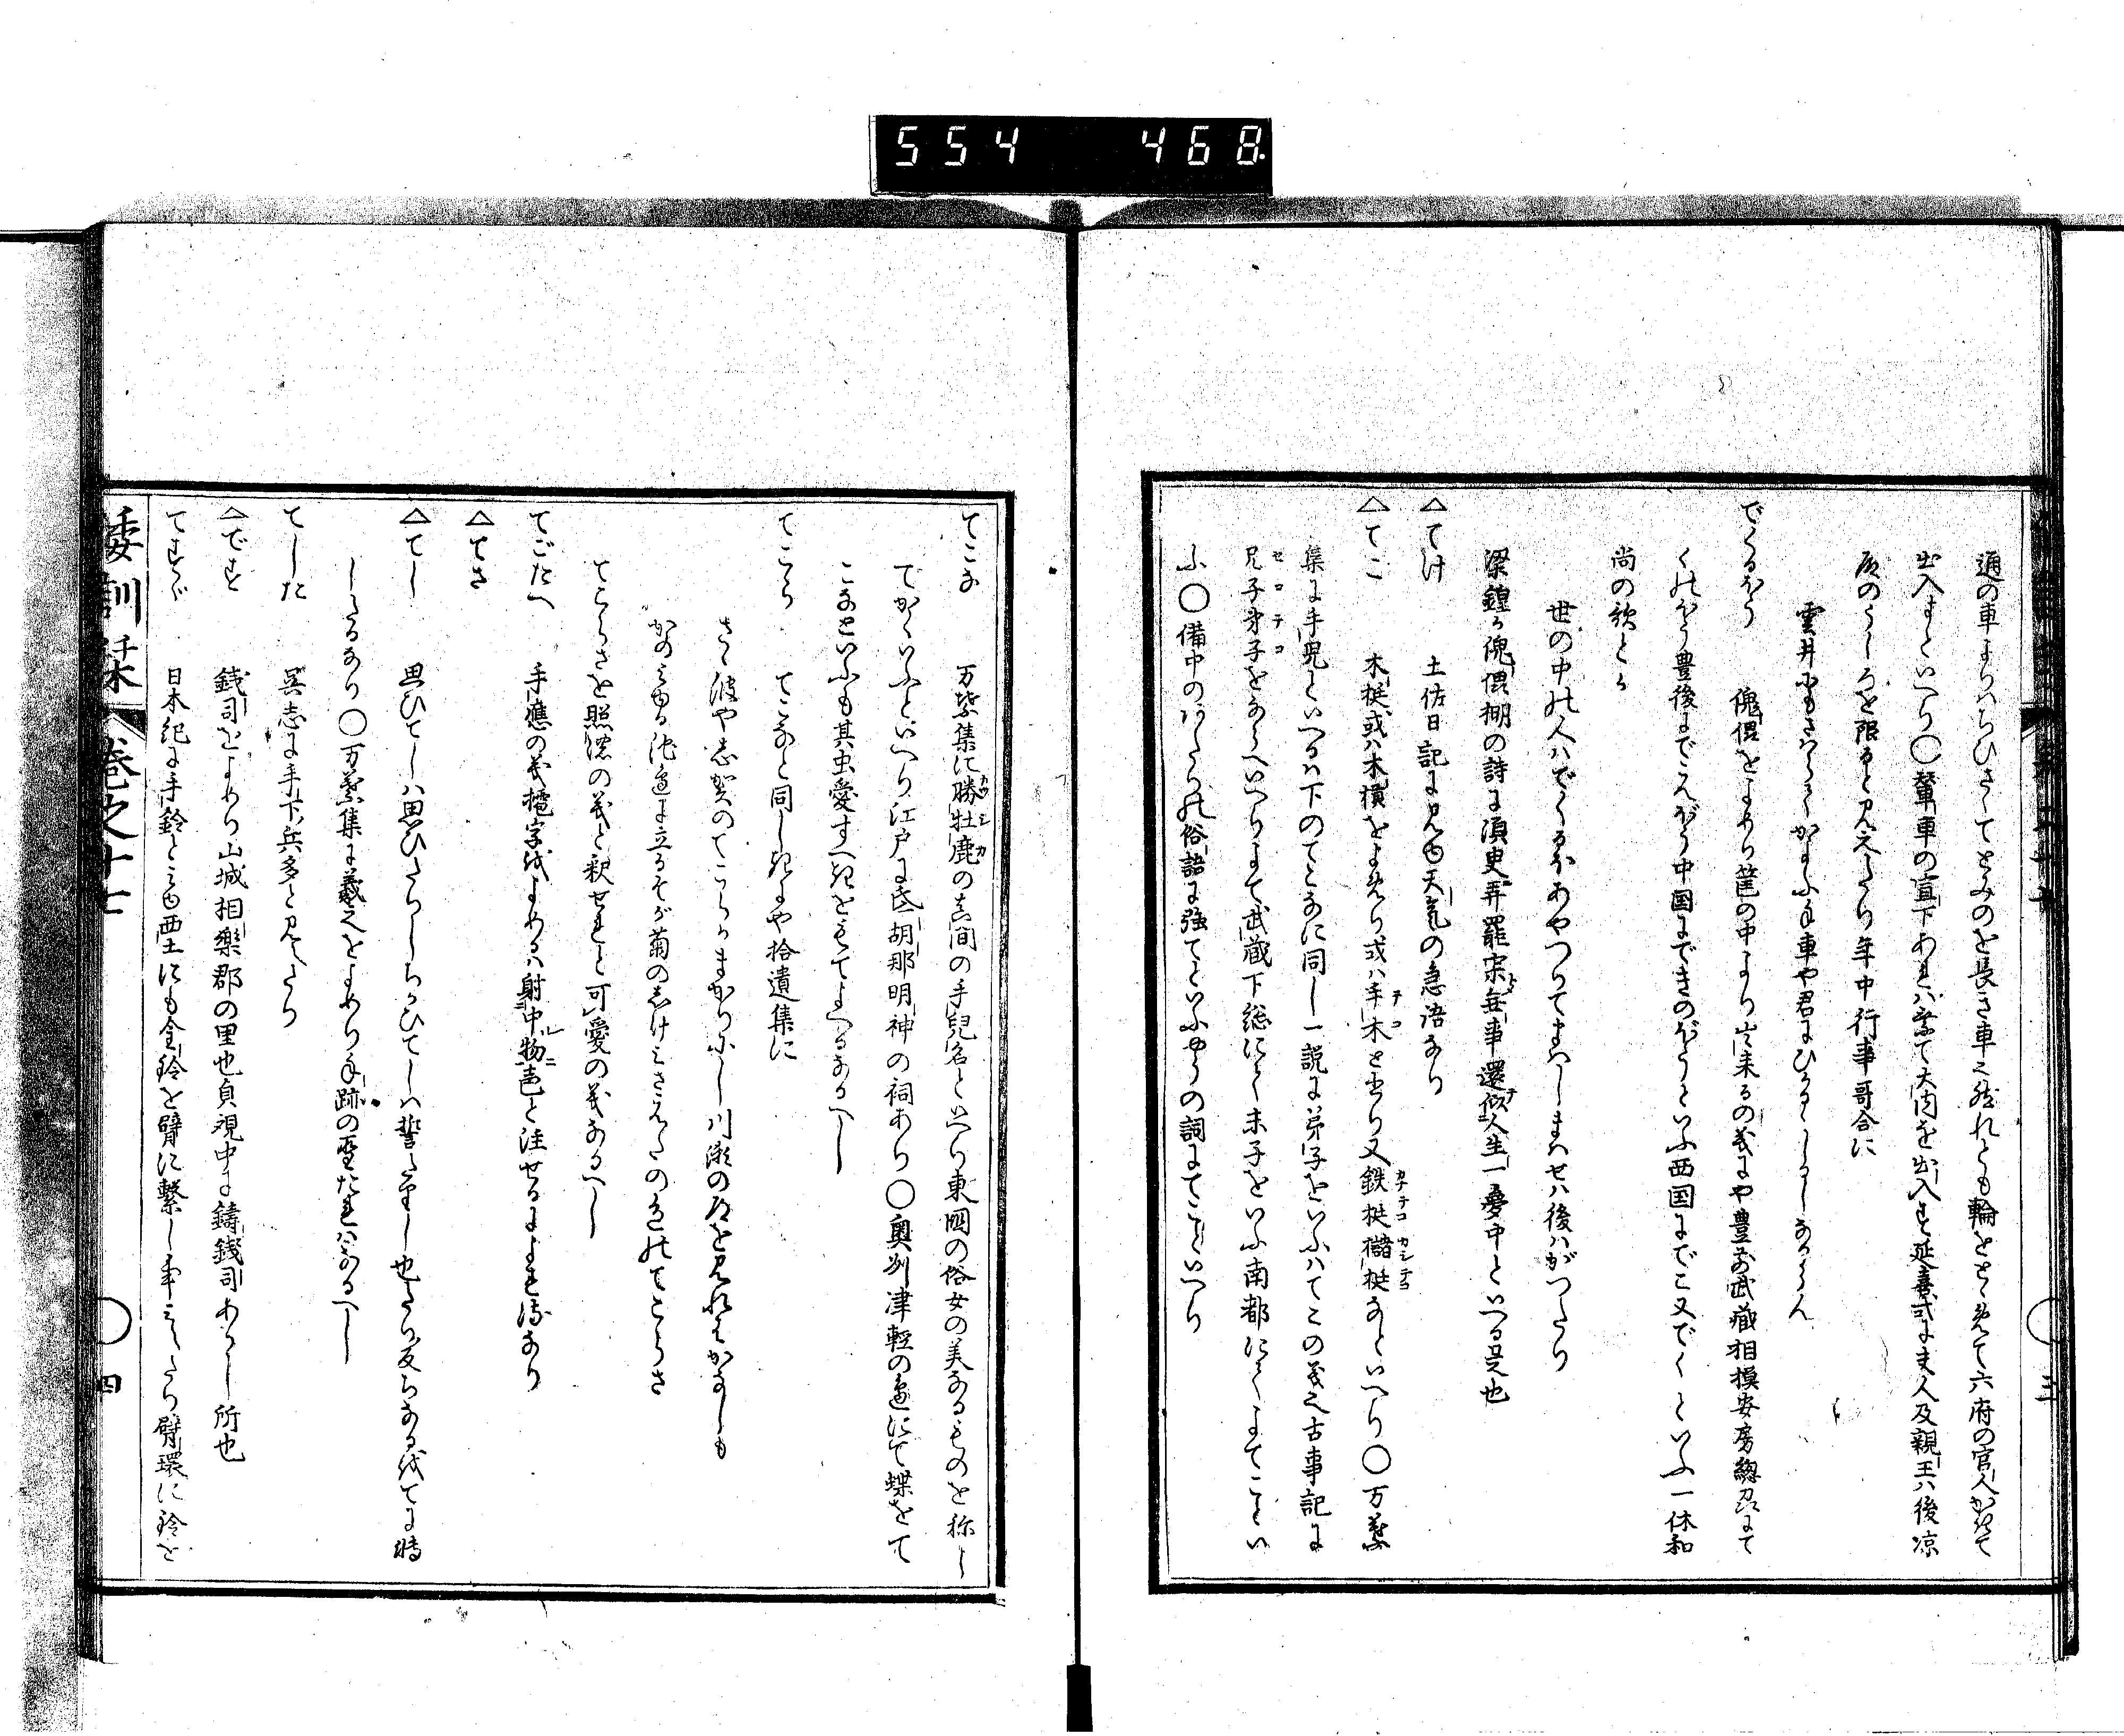 554 468
通の車よりハちひさくてとみのを長き車也然れとも輪をとゝめて六府の官人かきて
出入すといへり○輦車の宣下あれハ乗て大内を出入を延喜式に夫人及親王ハ後凉
殿のうしろを限ると見えたり年中行事哥合に
雲井にもさはらてかよふ手車や君にひかるゝしるしなるらん
でくるばう 傀儡をよめり筐の中より出来るの義にや豊前武蔵相摸安房總州にて
くれぼう豊後にでえぼう中国にできのぼうといふ西国にでこ又でくといふ一休和
尚の歌とて
世の中の人ハでくるばあやつりてまはしまはせハ後ハがつたり
梁鍠か傀儡棚の詩に須臾弄罷寂無事還似人生一夢中といへる是也
△てけ 土佐日記に見ゆ天氣の急語なり
△てこ 木梃或ハ木横をよめり或ハ手木と書り又鉄梃儲梃なといへり○万葉
集に手児といへるハ下のてこなに同し一説に弟子をいふハてこの義也古事記に
兄子弟子をならへいへりよて武蔵下総にて末子をいふ南都にてよてことい
ふ○備中のわたりの俗語に強てといふ如の詞にてこといへり
てこな 万葉集に勝牡鹿の真間の手兒名といへり東國の俗女の美なるものを称し
てかくいふといへり江戸に手胡那明神の祠あり○奥州津軽の邊にて蝶をて
こなといふも其虫愛すへきをもてよへるなるへし
てこら てこなと同しきにや拾遺集に
さゝ波や志賀のてこらかまかりにし川瀬の道を見れはかなしも
かのみゆる池邊に立るそが菊のしけみさえたの色のてこらさ
てこらさを照濃の義と釈せれと可愛の義なるへし
てごたへ 手應の義摅字をよめるハ射中物声と注せるによれる成なり
△てさ
△てし 思ひてしハ思ひたりしちかひてしハ誓たりし也たり反ちなるをてに轉
したるなり○万葉集に羲之をよめり手跡の聖たれハなるへし
てした 呉志に手下兵多と見えたり
△でぜす 銭司をよめり山城相樂郡の里也貞観中に鋳銭司ありし所也
てすゞ 日本紀に手鈴とみゆ西土にも金玲を臂に繋し事みえたり臂環に玲を
倭訓栞 巻之十七
三
四